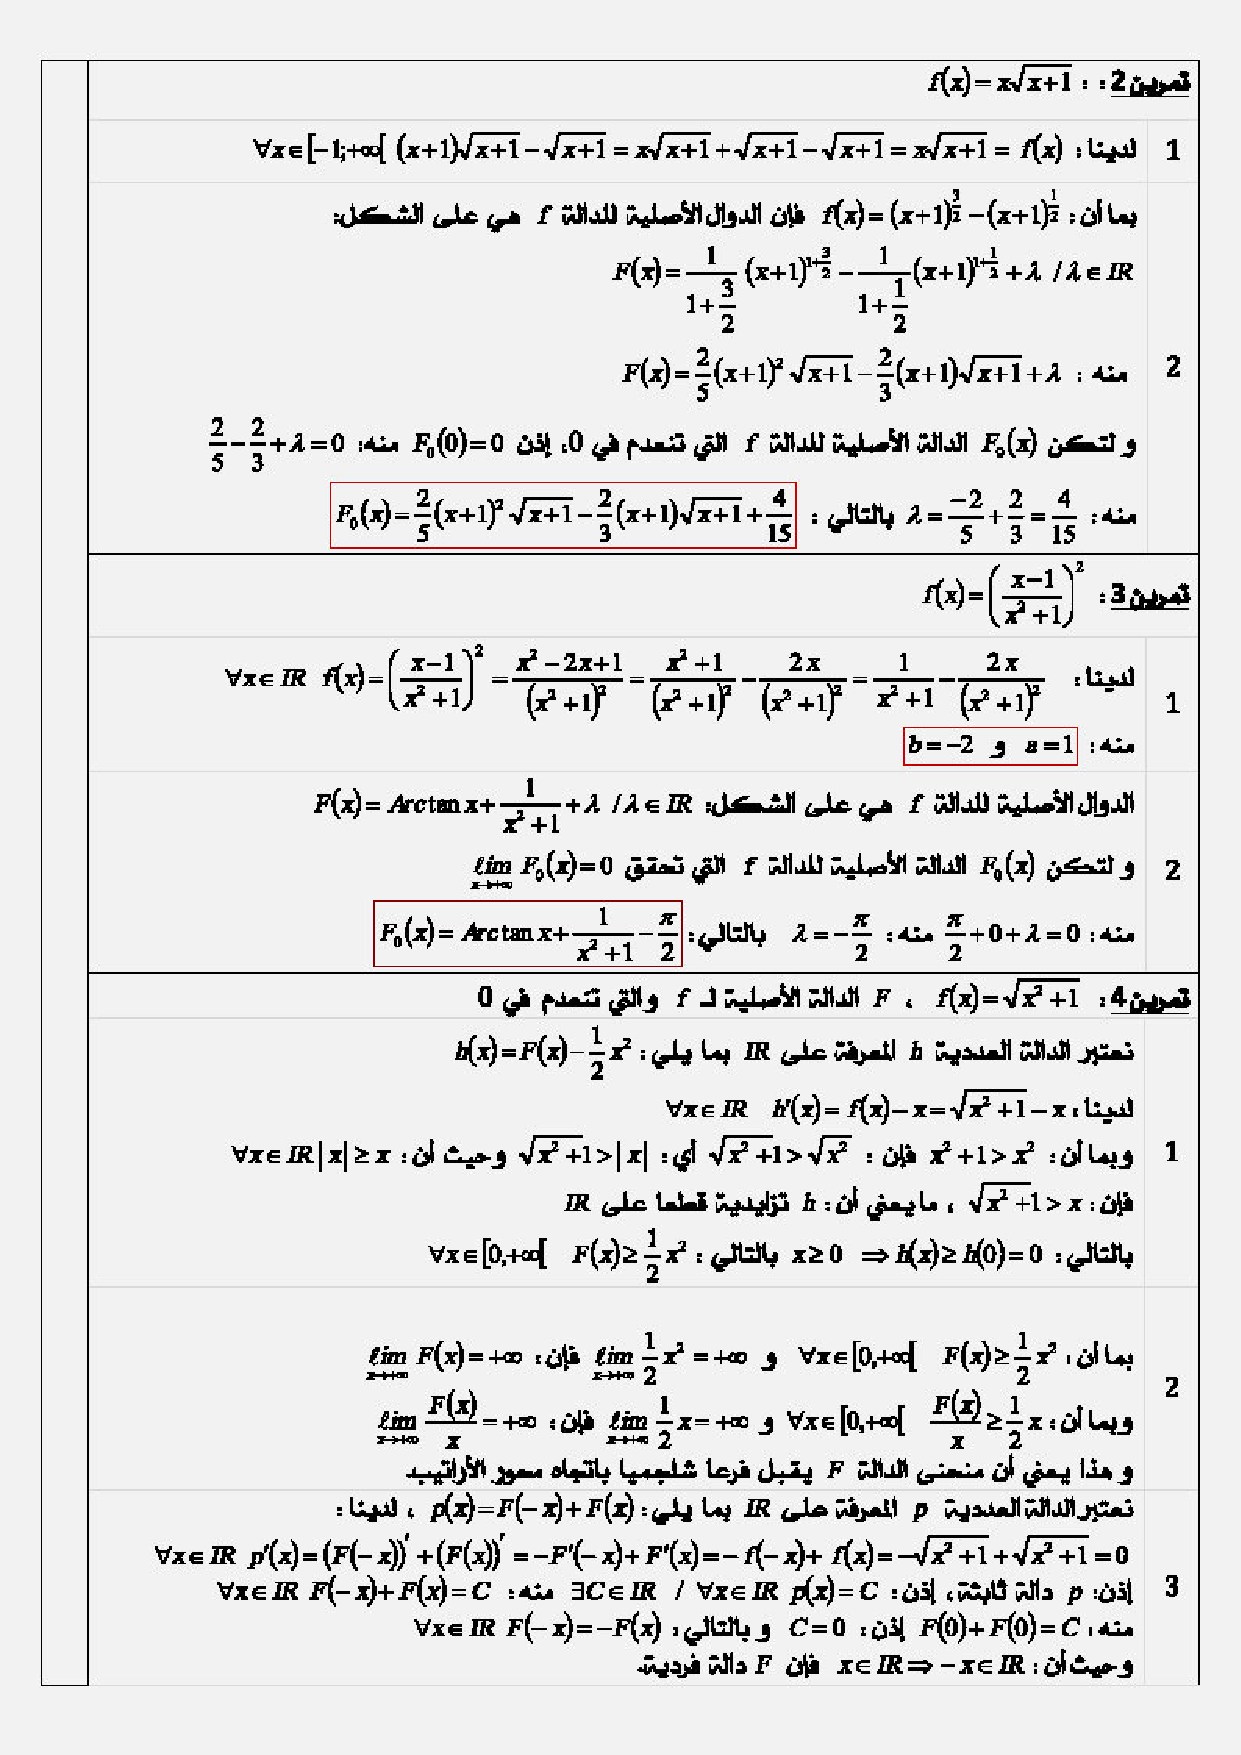 تمرين 2 : : f(x) = x√(x+1)
1
لدينا : ∀x ∈ [−1;+∞[ (x+1)√(x+1) − √(x+1) = x√(x+1) + √(x+1) − √(x+1) = x√(x+1) = f(x)
بما أن : f(x) = (x+1)^(3/2) − (x+1)^(1/2) فإن الدوال الأصلية للدالة f هي على الشكل:
F(x) = 1/(1+3/2) (x+1)^(1+3/2) − 1/(1+1/2) (x+1)^(1+1/2) + λ / λ ∈ IR
2
منه : F(x) = 2/5 (x+1)² √(x+1) − 2/3 (x+1)√(x+1) + λ
و لتكن F₀(x) الدالة الأصلية للدالة f التي تنعدم في 0، إذن F₀(0) = 0 منه: 2/5 − 2/3 + λ = 0
منه : λ = −2/5 + 2/3 = 4/15 بالتالي : F₀(x) = 2/5 (x+1)² √(x+1) − 2/3 (x+1)√(x+1) + 4/15
تمرين 3 : f(x) = ((x−1)/(x²+1))²
1
لدينا : ∀x ∈ IR f(x) = ((x−1)/(x²+1))² = (x²−2x+1)/(x²+1)² = (x²+1)/(x²+1)² − 2x/(x²+1)² = 1/(x²+1) − 2x/(x²+1)²
منه : a = 1 و b = −2
الدوال الأصلية للدالة f هي على الشكل: F(x) = Arctan x + 1/(x²+1) + λ / λ ∈ IR
2
و لتكن F₀(x) الدالة الأصلية للدالة f التي تحقق ℓim x→+∞ F₀(x) = 0
منه : π/2 + 0 + λ = 0 منه : λ = −π/2 بالتالي: F₀(x) = Arctan x + 1/(x²+1) − π/2
تمرين 4 : f(x) = √(x²+1) ، F الدالة الأصلية لـ f والتي تنعدم في 0
نعتبر الدالة العددية h المعرفة على IR بما يلي : h(x) = F(x) − 1/2 x²
لدينا : ∀x ∈ IR h'(x) = f(x) − x = √(x²+1) − x
1
وبما أن : x²+1 > x² فإن : √(x²+1) > √x² أي : √(x²+1) > |x| وحيث أن : ∀x ∈ IR |x| ≥ x
فإن : √(x²+1) > x ، ما يعني أن : h تزايدية قطعا على IR
بالتالي : x ≥ 0 ⇒ h(x) ≥ h(0) = 0 بالتالي : ∀x ∈ [0,+∞[ F(x) ≥ 1/2 x²
بما أن : ∀x ∈ [0,+∞[ F(x) ≥ 1/2 x² و ℓim x→+∞ 1/2 x² = +∞ فإن : ℓim x→+∞ F(x) = +∞
2
وبما أن : ∀x ∈ [0,+∞[ F(x)/x ≥ 1/2 x و ℓim x→+∞ 1/2 x = +∞ فإن : ℓim x→+∞ F(x)/x = +∞
و هذا يعني أن منحنى الدالة F يقبل فرعا شلجميا باتجاه محور الأراتيب.
نعتبر الدالة العددية p المعرفة على IR بما يلي : p(x) = F(−x) + F(x) ، لدينا :
∀x ∈ IR p'(x) = (F(−x))' + (F(x))' = −F'(−x) + F'(x) = −f(−x) + f(x) = −√(x²+1) + √(x²+1) = 0
3
إذن: p دالة ثابتة، إذن : ∃C ∈ IR / ∀x ∈ IR p(x) = C منه : ∀x ∈ IR F(−x) + F(x) = C
منه : F(0) + F(0) = C إذن : C = 0 و بالتالي : ∀x ∈ IR F(−x) = −F(x)
وحيث أن : x ∈ IR ⇒ −x ∈ IR فإن F دالة فردية.